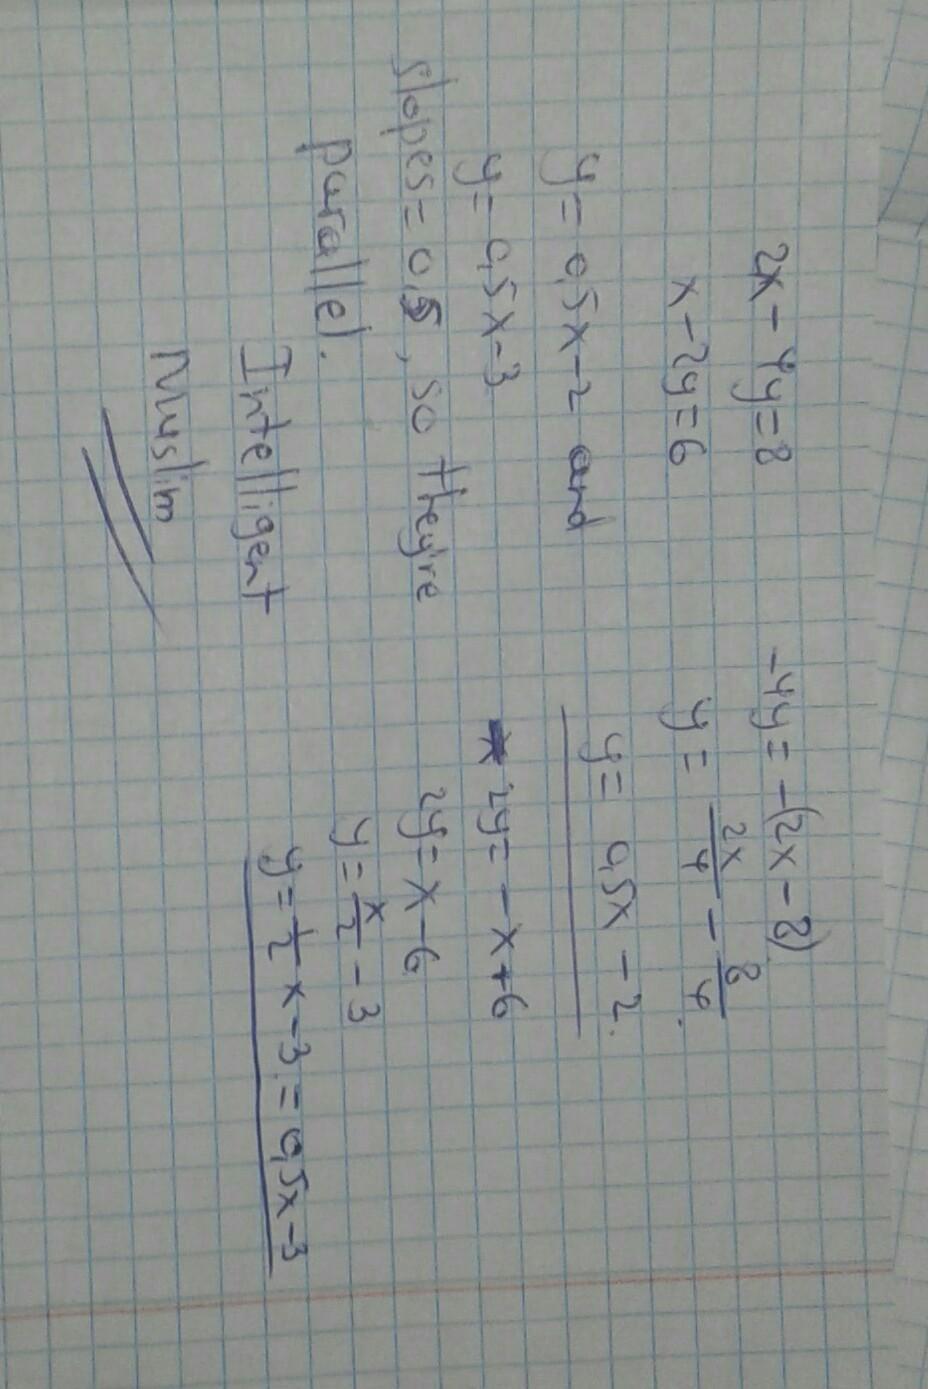 2x - 4y = 8
x - 2y = 6
y = 0,5x - 2 and
y = 0,5x - 3
slopes = 0,5, so they're
parallel.
Intelligent
Muslim
-4y = -(2x - 8)
y = 2x/4 - 8/4.
y = 0,5x - 2.
2y = -x + 6
2y = x - 6
y = x/2 - 3
y = 1/2 x - 3 = 0,5x - 3